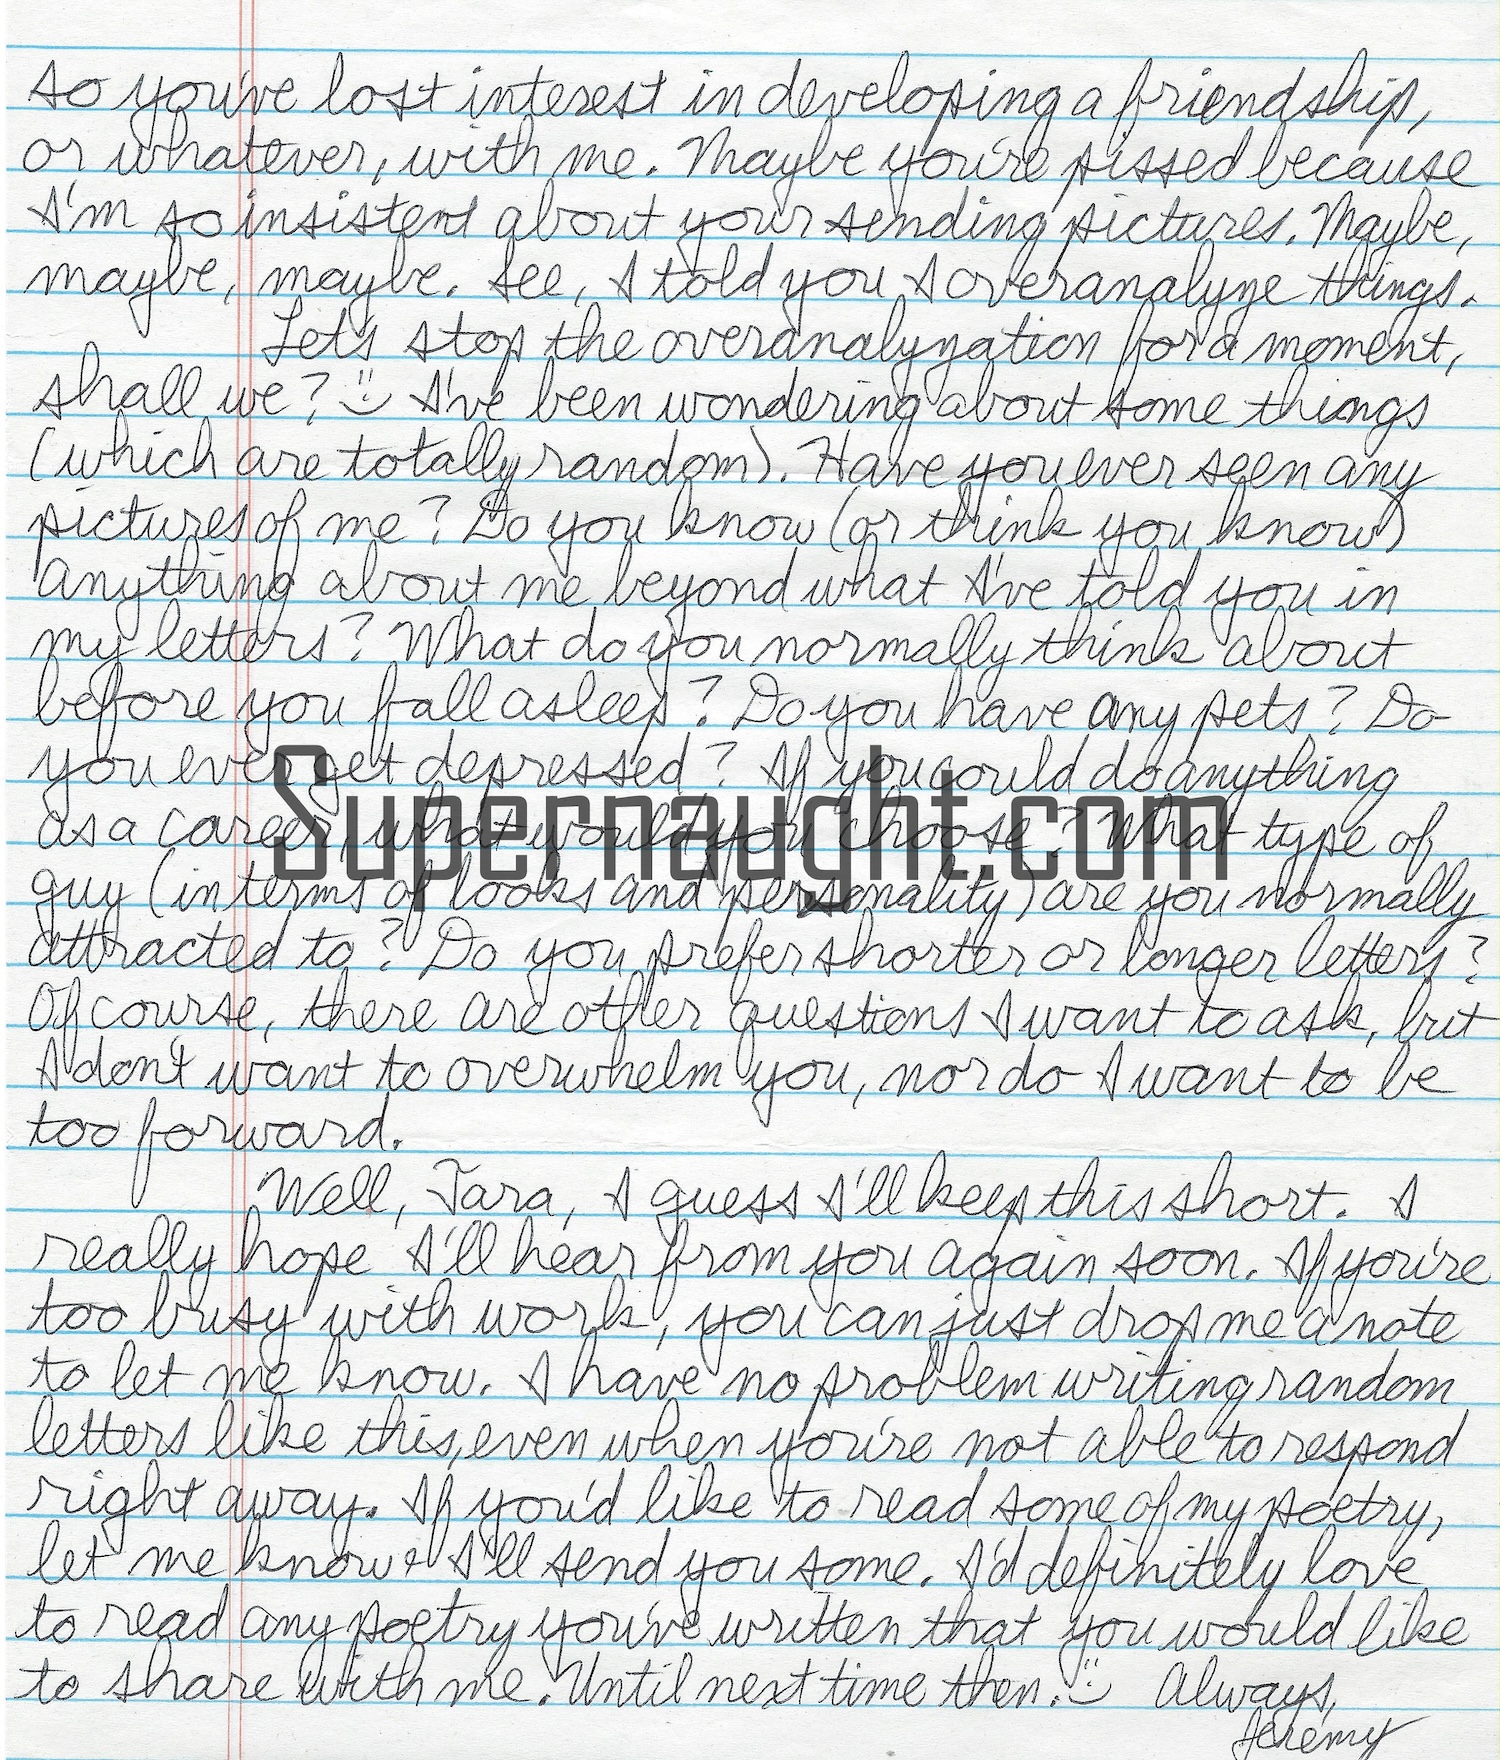 so you've lost interest in developing a friendship,
or whatever, with me. Maybe you're pissed because
I'm so insistent about your sending pictures. Maybe,
maybe, maybe. See, I told you I overanalyze things.
Let's stop the overanalyzation for a moment,
shall we? :) I've been wondering about some things
(which are totally random). Have you ever seen any
pictures of me? Do you know (or think you know)
anything about me beyond what I've told you in
my letters? What do you normally think about
before you fall asleep? Do you have any pets? Do
you ever get depressed? If you could do anything
as a career, what would you choose? What type of
guy (in terms of looks and personality) are you normally
attracted to? Do you prefer shorter or longer letters?
Of course, there are other questions I want to ask, but
I don't want to overwhelm you, nor do I want to be
too forward.
Well, Tara, I guess I'll keep this short. I
really hope I'll hear from you again soon. If you're
too busy with work, you can just drop me a note
to let me know. I have no problem writing random
letters like this, even when you're not able to respond
right away. If you'd like to read some of my poetry,
let me know & I'll send you some. I'd definitely love
to read any poetry you've written that you would like
to share with me. Until next time then. :) Always,
Jeremy
Supernaught.com